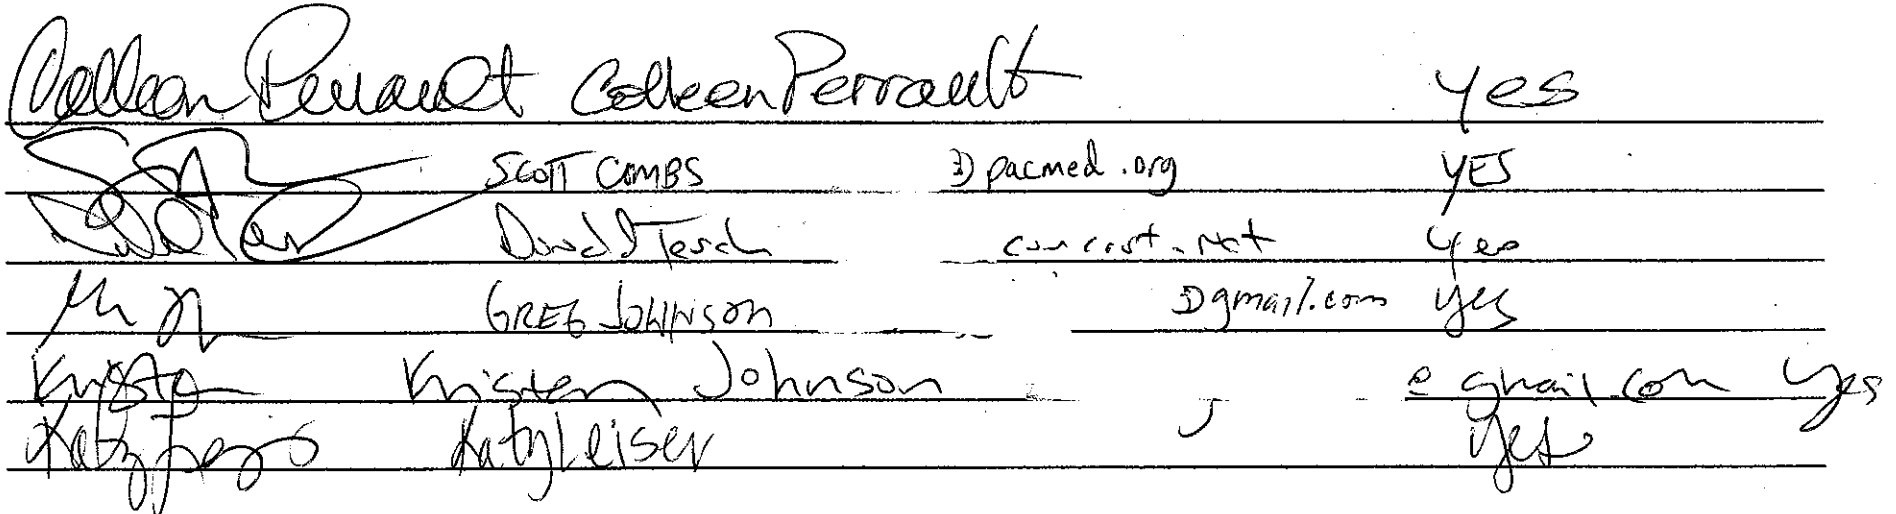 Colleen Perrault Colleen Perrault yes
SCOTT COMBS @pacmed.org YES
David Tesch comcast.net Yes
GREG JOHNSON @gmail.com yes
Kristen Kristen Johnson @gmail.com Yes
Katy Katy Leiser Yes